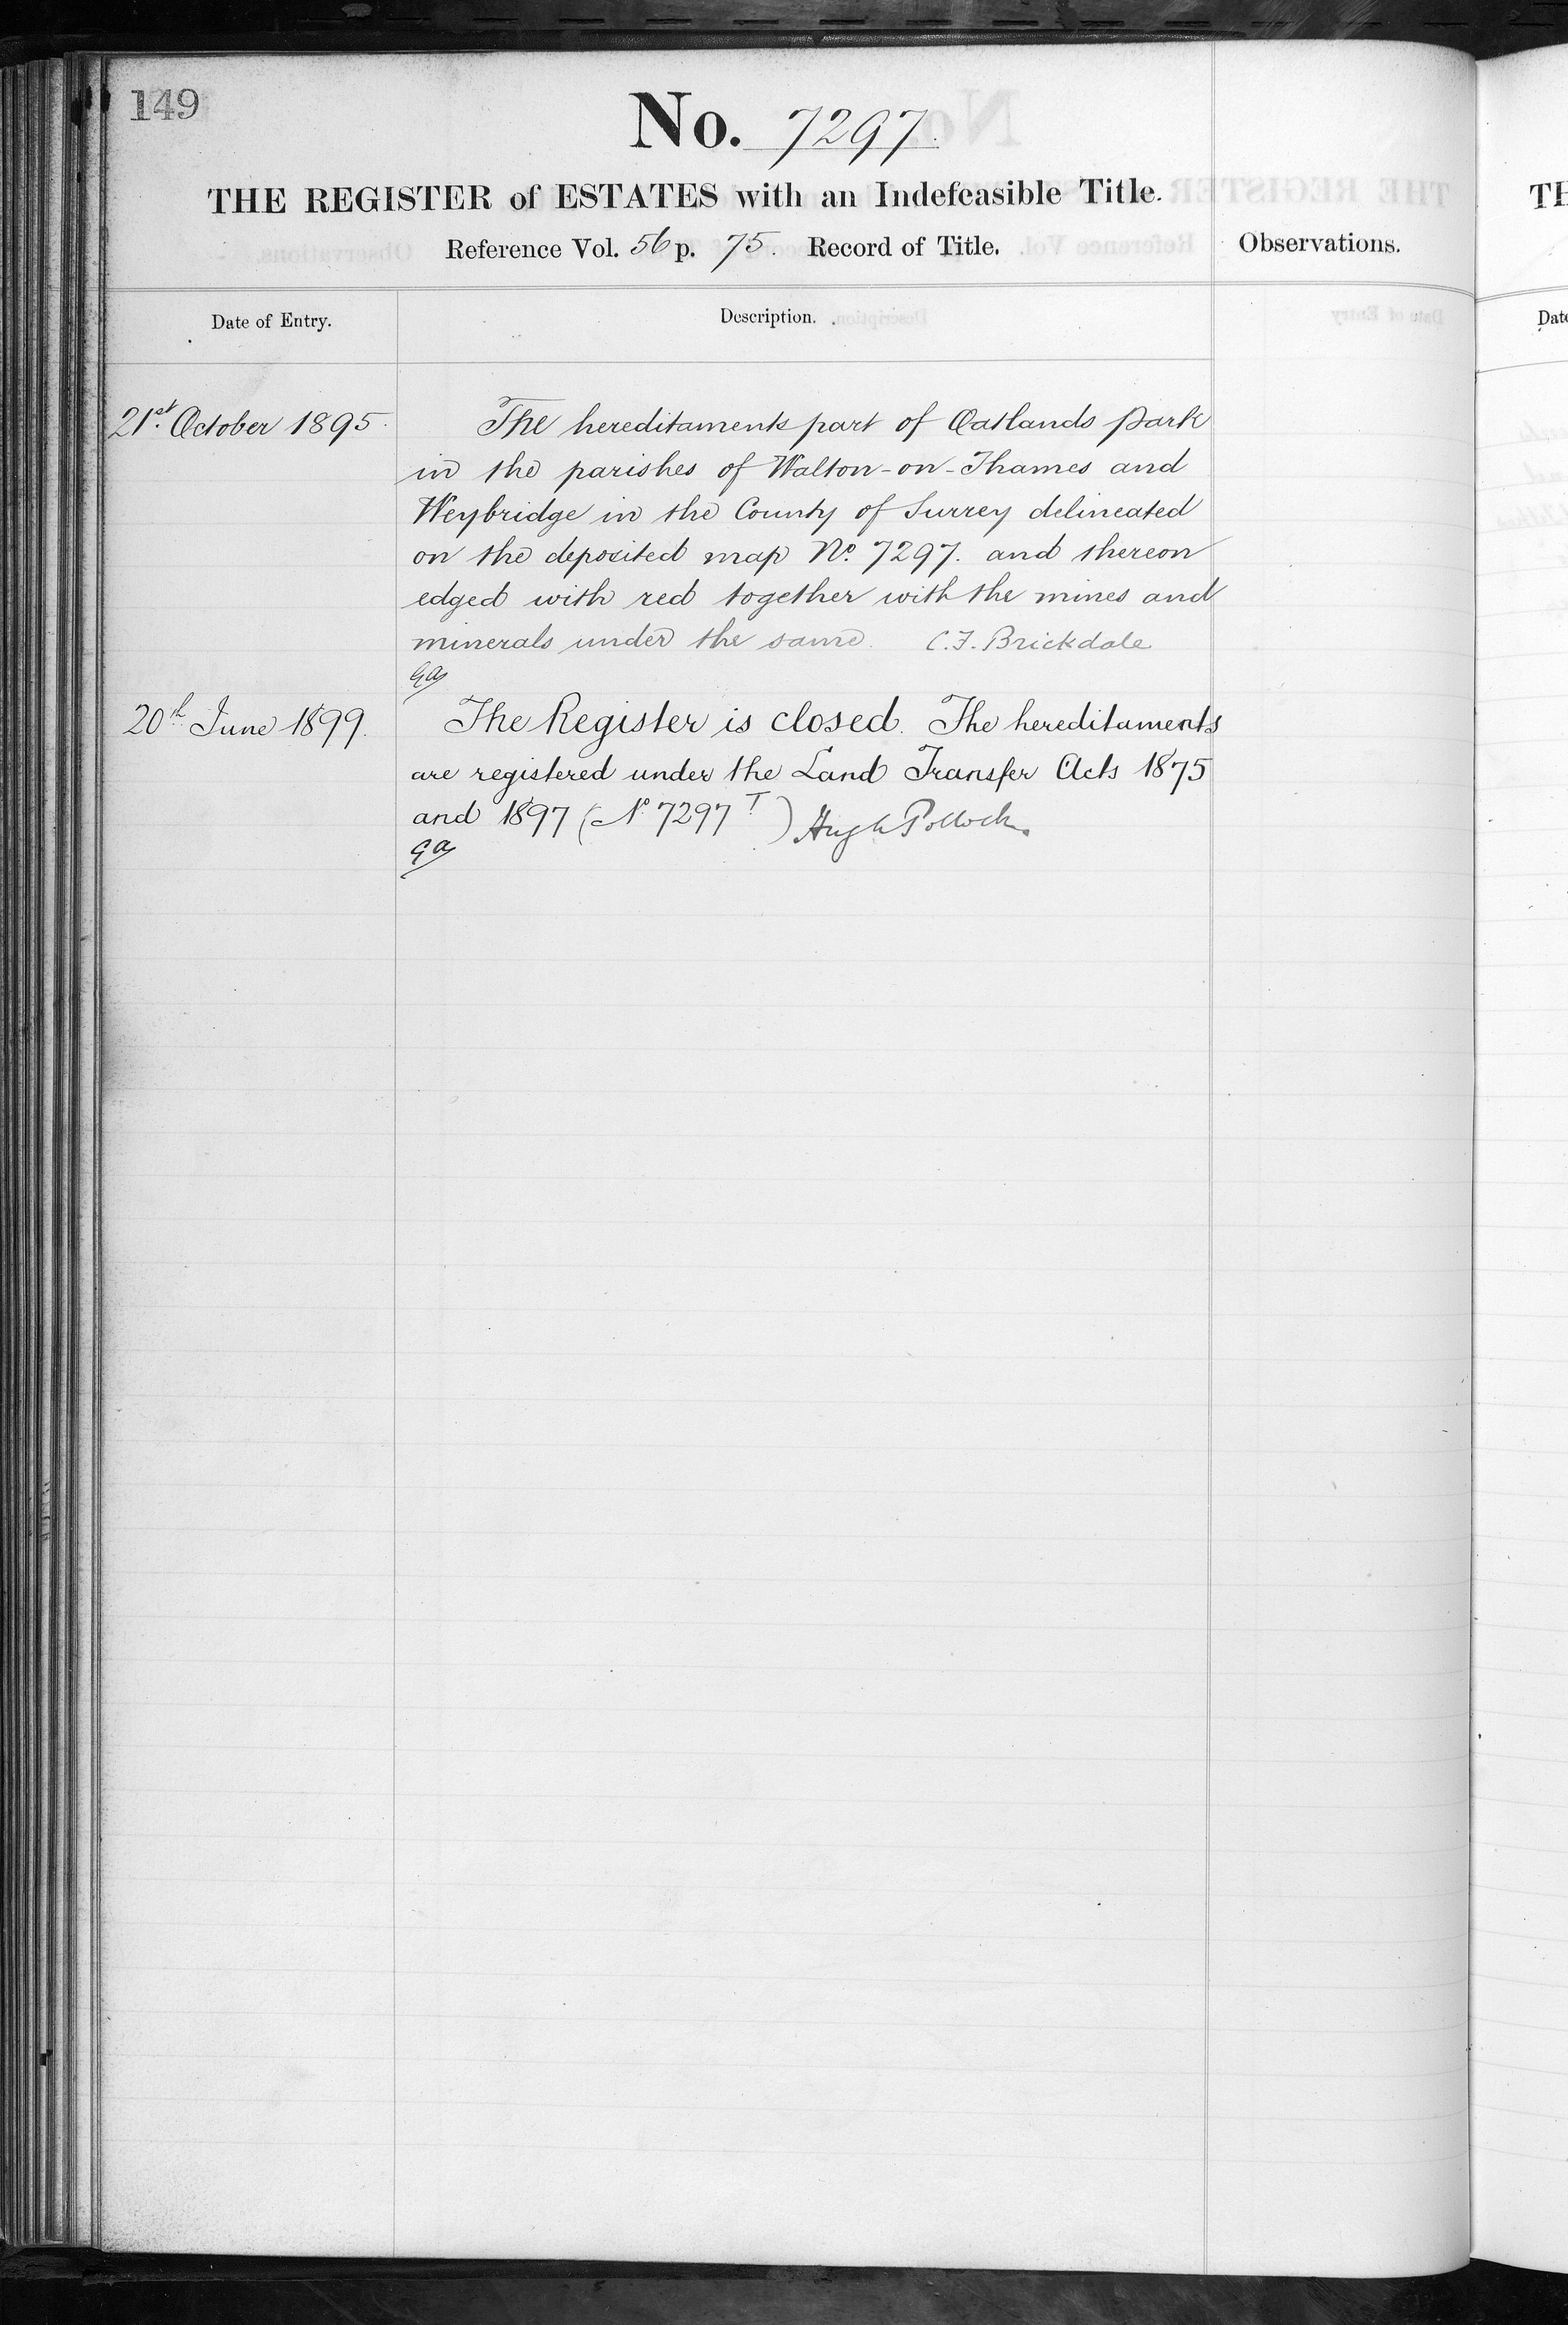 149
No. 7297.
THE REGISTER of ESTATES with an Indefeasible Title.
Reference Vol. 56 p. 75. Record of Title.
Observations.
Date of Entry.
Description.
21st October 1895.
The hereditaments part of Oatlands Park
in the parishes of Walton-on-Thames and
Weybridge in the County of Surrey delineated
on the deposited map No. 7297. and thereon
edged with red together with the mines and
minerals under the same. C. F. Brickdale
20th June 1899.
The Register is closed. The hereditaments
are registered under the Land Transfer Acts 1875
and 1897 (No 7297 T) Hugh Pollock.
TH
Date